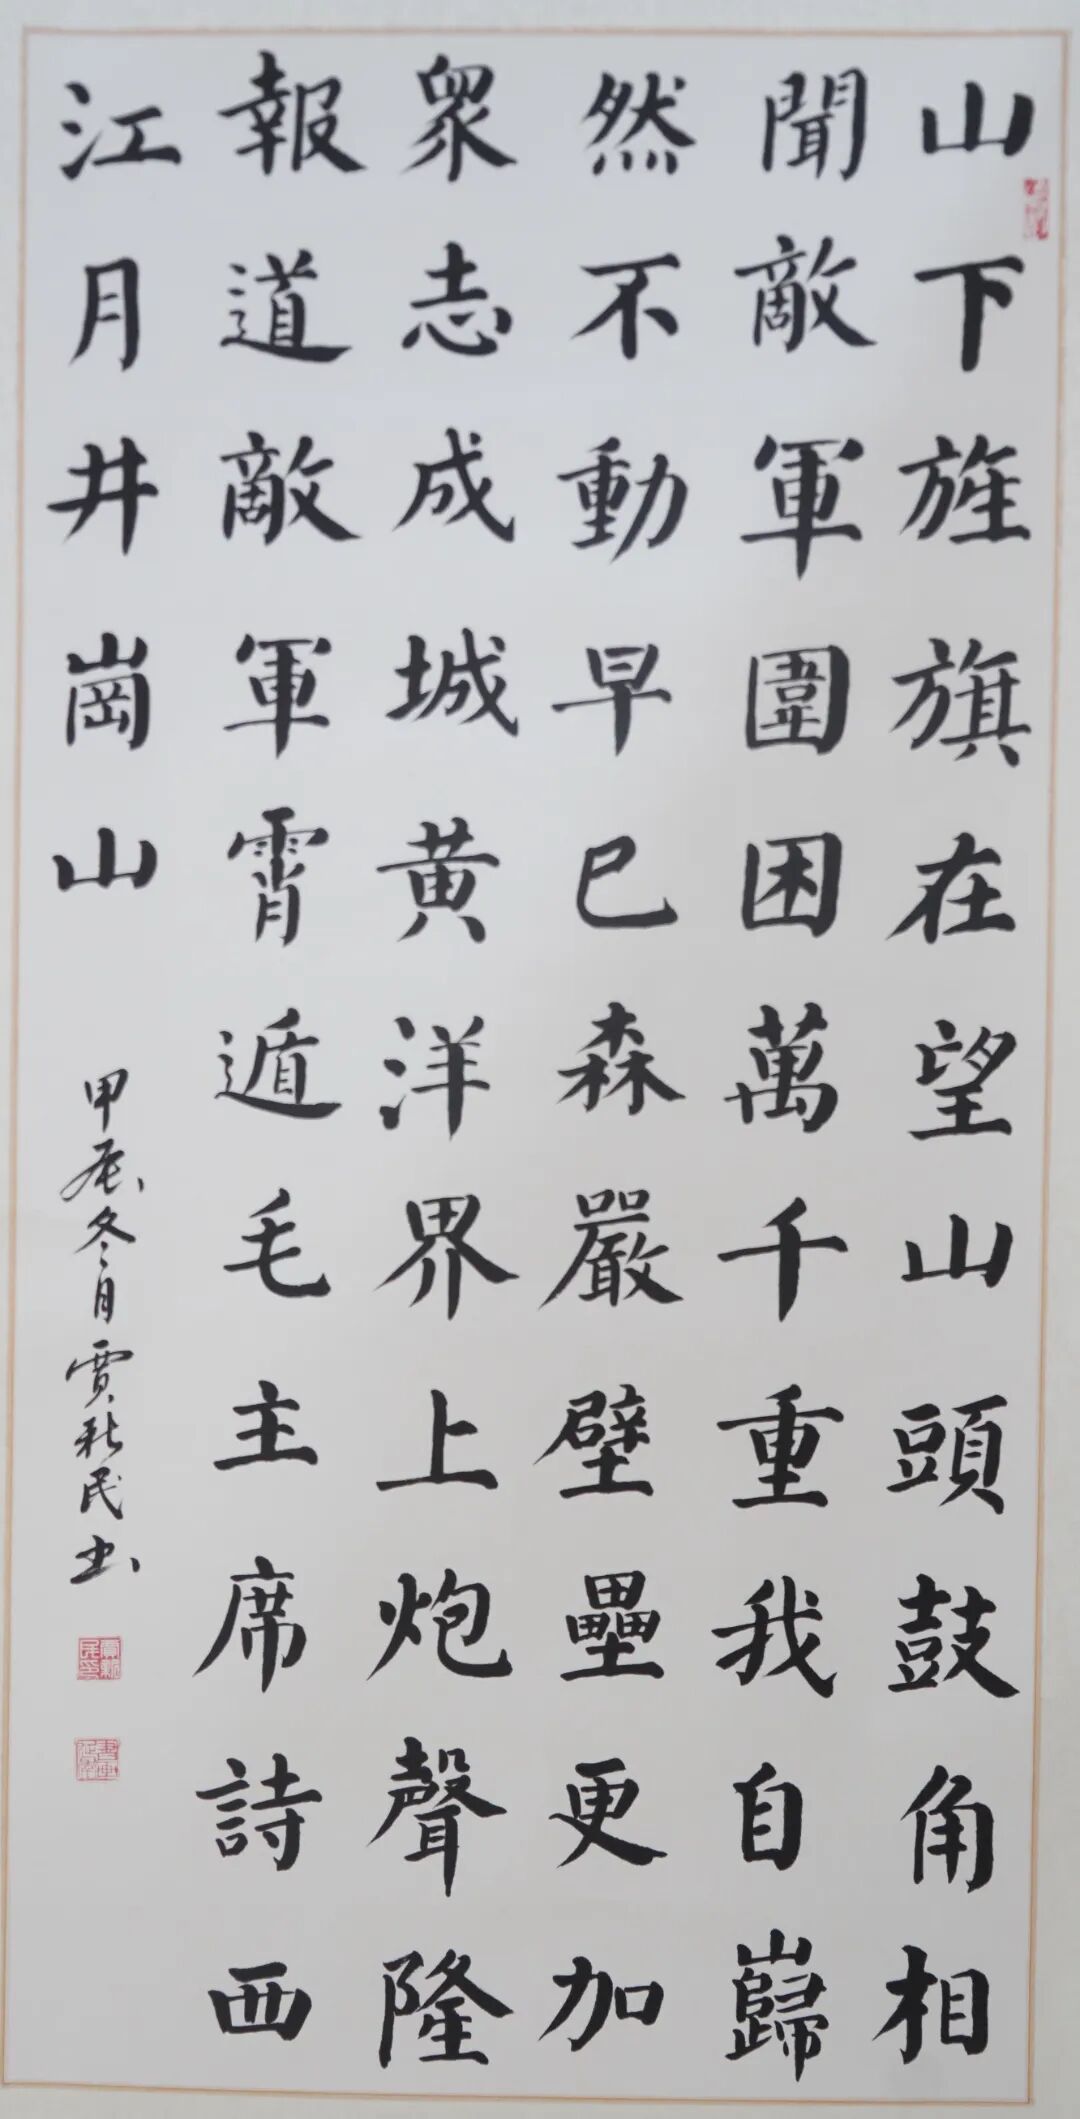 山下旌旗在望山頭鼓角相
聞敵軍圍困萬千重我自巋
然不動早已森嚴壁壘更加
眾志成城黄洋界上炮聲隆
報道敵軍霄遁毛主席詩西
江月井崗山
甲辰冬月賈新民书